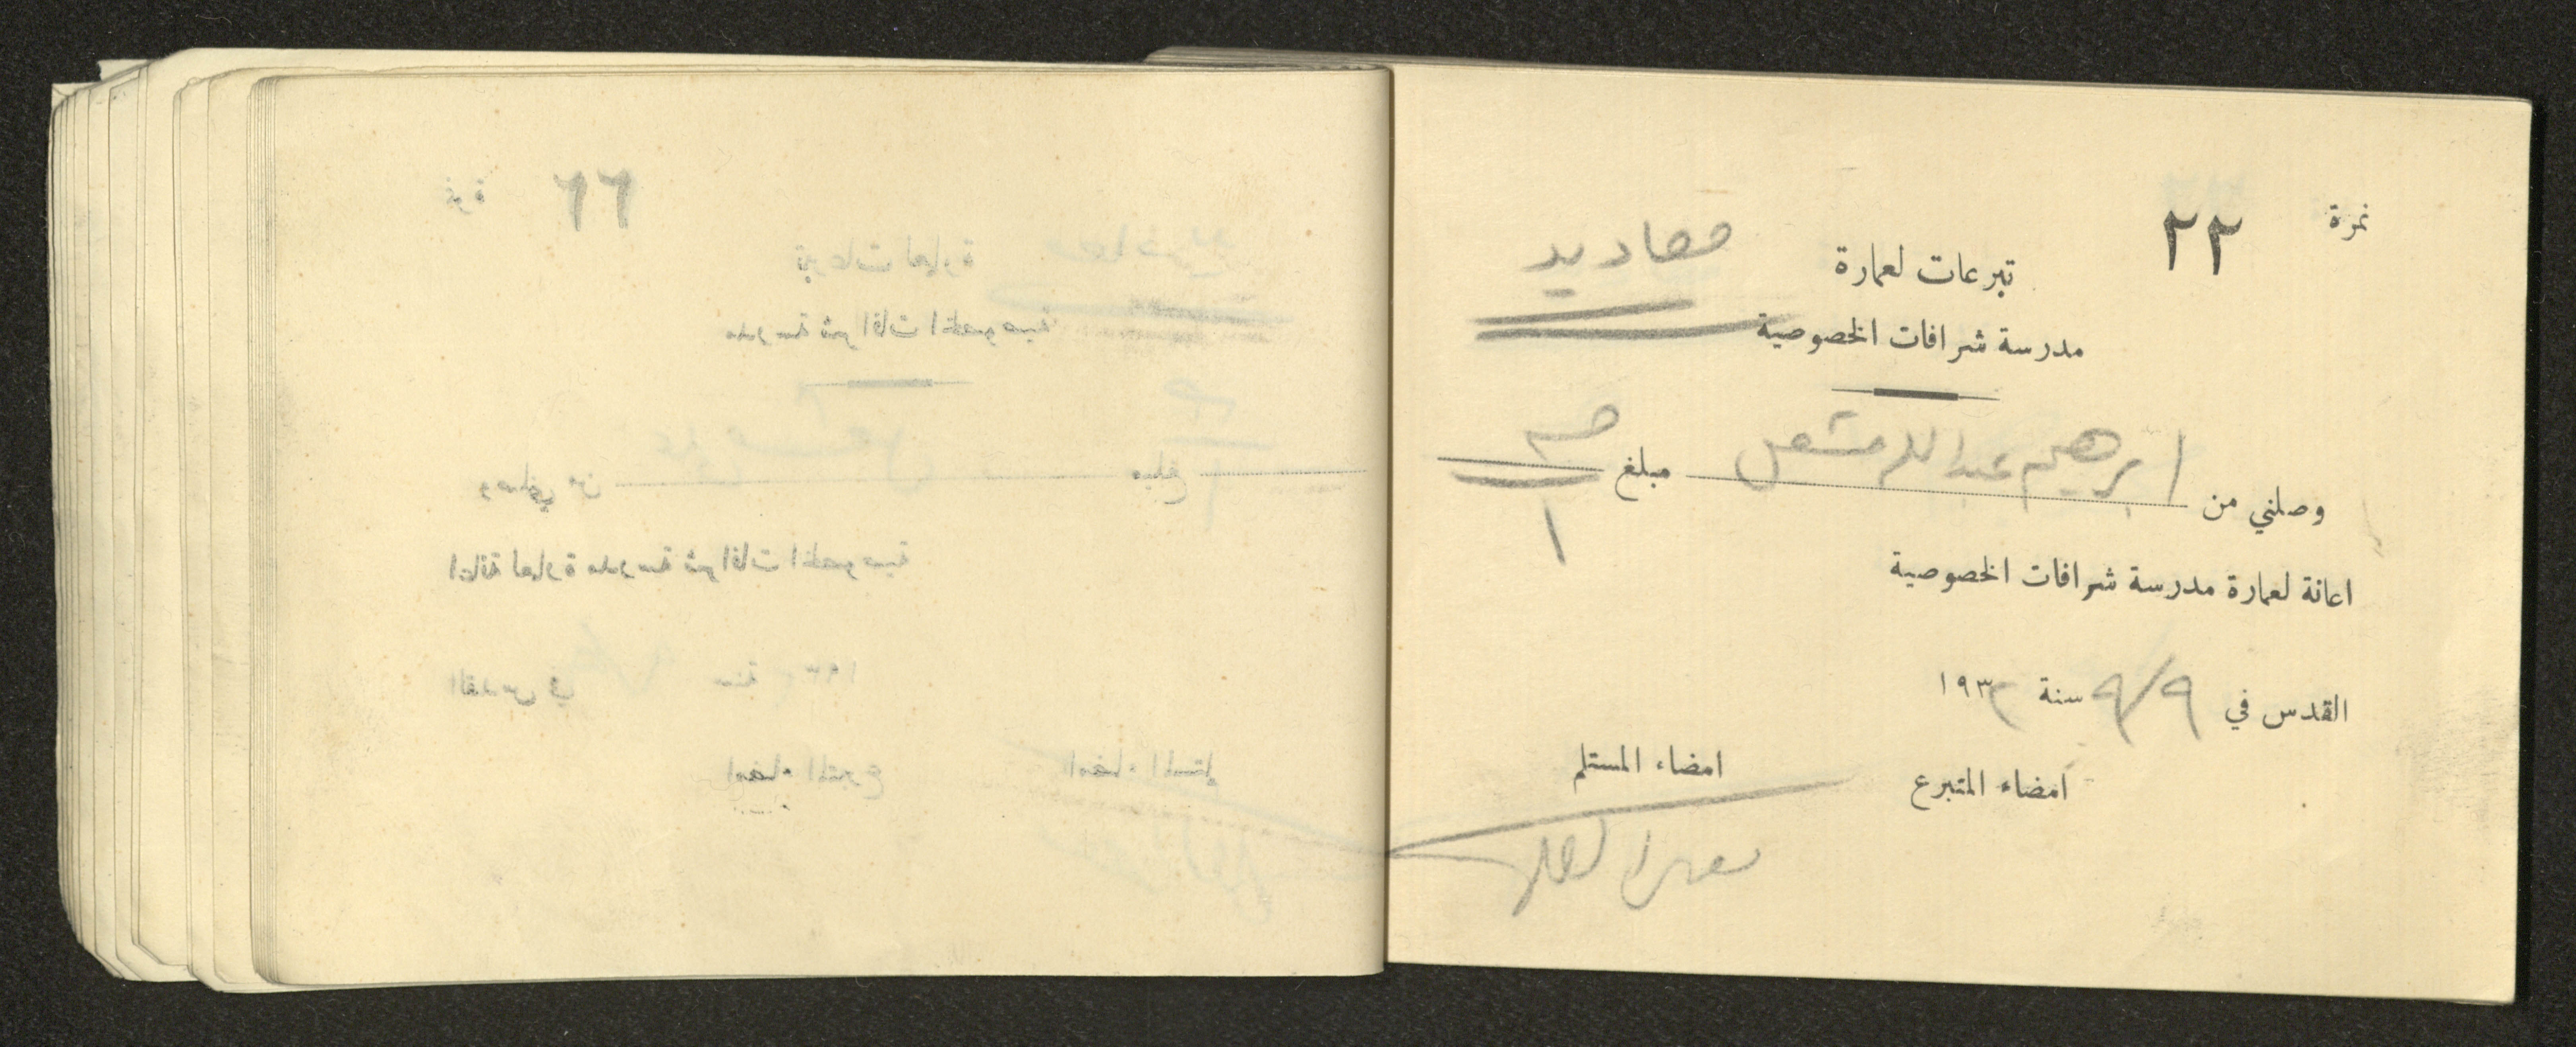 نمرة ٢٢
تبرعات لعمارة
مدرسة شرافات الخصوصية
وصلني من ابرهيم عبدالله مشعل مبلغ
١
اعانة لعمارة مدرسة شرافات الخصوصية
القدس في ٩/٩ سنة ١٩٣٢
امضاء المتبرع امضاء المستلم